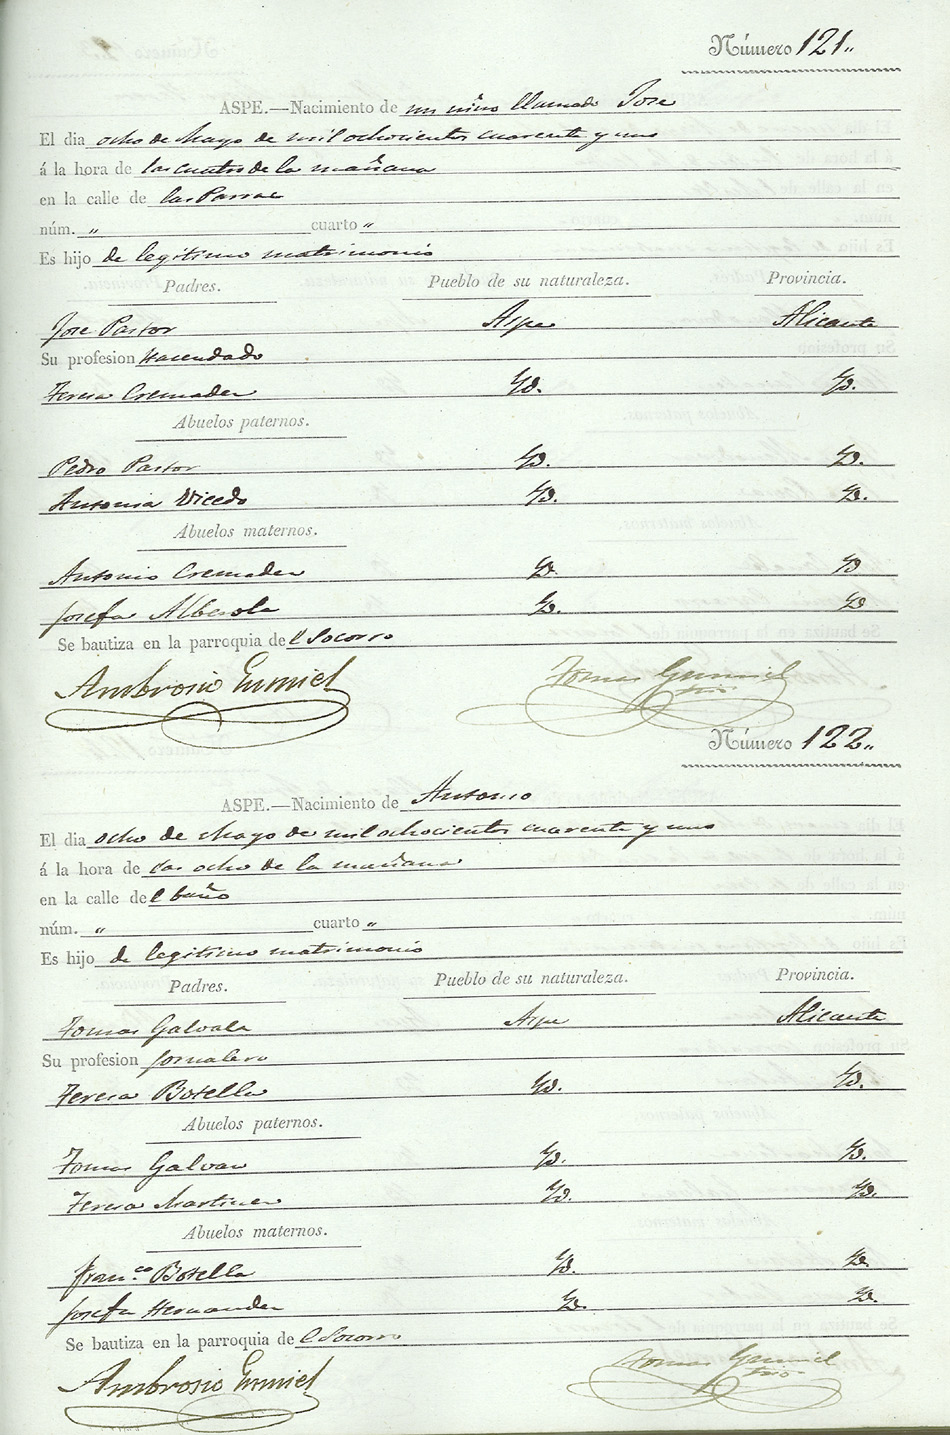 Número 121,,
ASPE.—Nacimiento de un niño llamado Jose
El dia ocho de Mayo de mil ochocientos cuarenta y uno
á la hora de las cuatro de la mañana
en la calle de las Parras
núm. ,, cuarto ,,
Es hijo de legitimo matrimonio
Padres. Pueblo de su naturaleza. Provincia.
Jose Pastor Aspe Alicante
Su profesion Hacendado
Teresa Cremades Yd. Yd.
Abuelos paternos.
Pedro Pastor Yd. Yd.
Antonia Vicedo Yd. Yd.
Abuelos maternos.
Antonio Cremades Yd. Yd
Josefa Alberola Yd. Yd
Se bautiza en la parroquia de el Socorro
Ambrosio Gumiel Tomas Gumiel
srio
Número 122,,
ASPE.—Nacimiento de Antonio
El dia ocho de Mayo de mil ochocientos cuarenta y uno
á la hora de las ocho de la mañana
en la calle de el baño
núm. ,, cuarto ,,
Es hijo de legitimo matrimonio
Padres. Pueblo de su naturaleza. Provincia.
Tomas Aspe Alicante
Su profesion jornalero
Teresa Botella Yd. Yd.
Abuelos paternos.
Tomas Galvan Yd. Yd.
Teresa Martinez Yd. Yd.
Abuelos maternos.
Fran.co Botella Yd. Yd.
Josefa Hernandez Yd. Yd.
Se bautiza en la parroquia de el Socorro
Ambrosio Gumiel Tomas Gumiel
srio